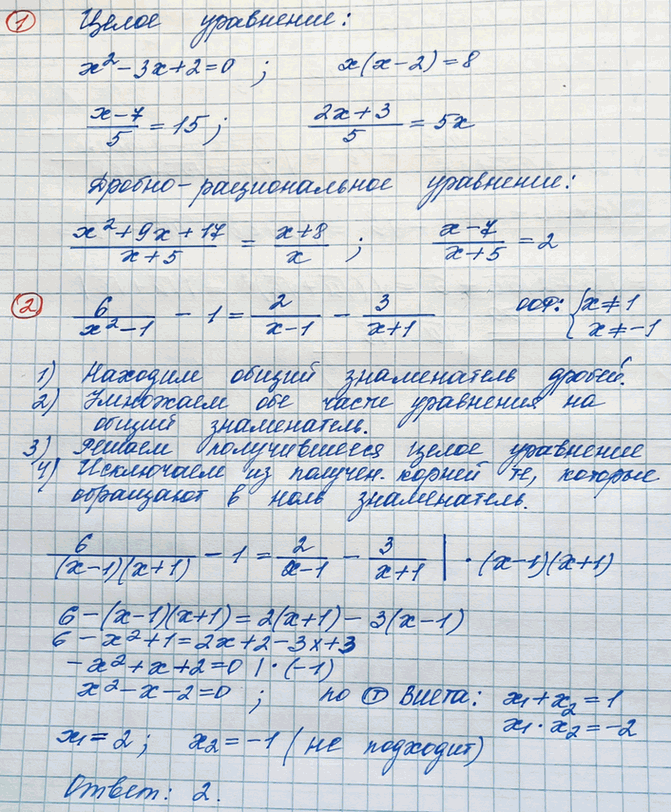 ① Целое уравнение:
x² - 3x + 2 = 0 ; x(x-2) = 8
(x-7)/5 = 15 ; (2x+3)/5 = 5x
Дробно-рациональное уравнение:
(x²+9x+17)/(x+5) = (x+8)/x ; (x-7)/(x+5) = 2
② 6/(x²-1) - 1 = 2/(x-1) - 3/(x+1) ООФ: { x≠1
x≠-1
1) Находим общий знаменатель дробей.
2) Умножаем обе части уравнения на
общий знаменатель.
3) Решаем получившееся целое уравнение
4) Исключаем из получен. корней те, которые
обращают в ноль знаменатель.
6/((x-1)(x+1)) - 1 = 2/(x-1) - 3/(x+1) | · (x-1)(x+1)
6 - (x-1)(x+1) = 2(x+1) - 3(x-1)
6 - x² + 1 = 2x + 2 - 3x + 3
-x² + x + 2 = 0 | · (-1)
x² - x - 2 = 0 ; по Ⓣ Виета: x₁ + x₂ = 1
x₁ · x₂ = -2
x₁ = 2 ; x₂ = -1 (не подходит)
Ответ: 2.